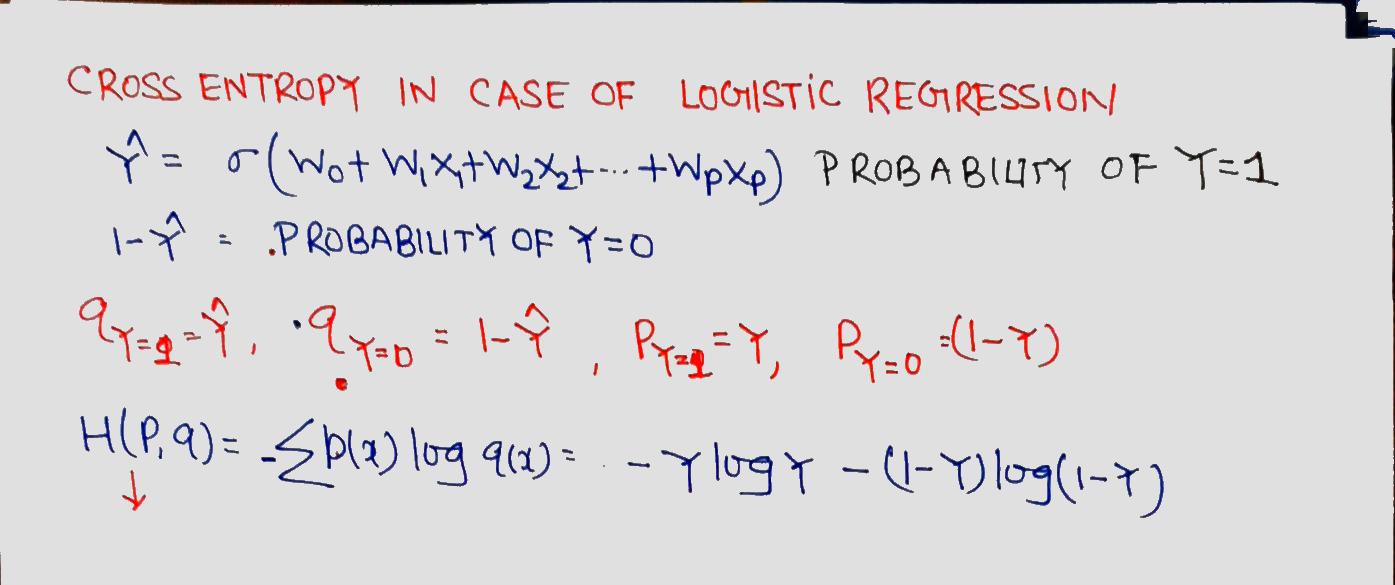 CROSS ENTROPY IN CASE OF LOGISTIC REGRESSION
Ŷ = σ(W₀+W₁X₁+W₂X₂+...+WₚXₚ) PROBABILITY OF Y=1
1-Ŷ = .PROBABILITY OF Y=0
q_Y=1=Ŷ, q_Y=0 = 1-Ŷ, P_Y=1=Y, P_Y=0=(1-Y)
H(P,q)= -Σp(x) log q(x)= -Y log Y -(1-Y)log(1-Y)
↓